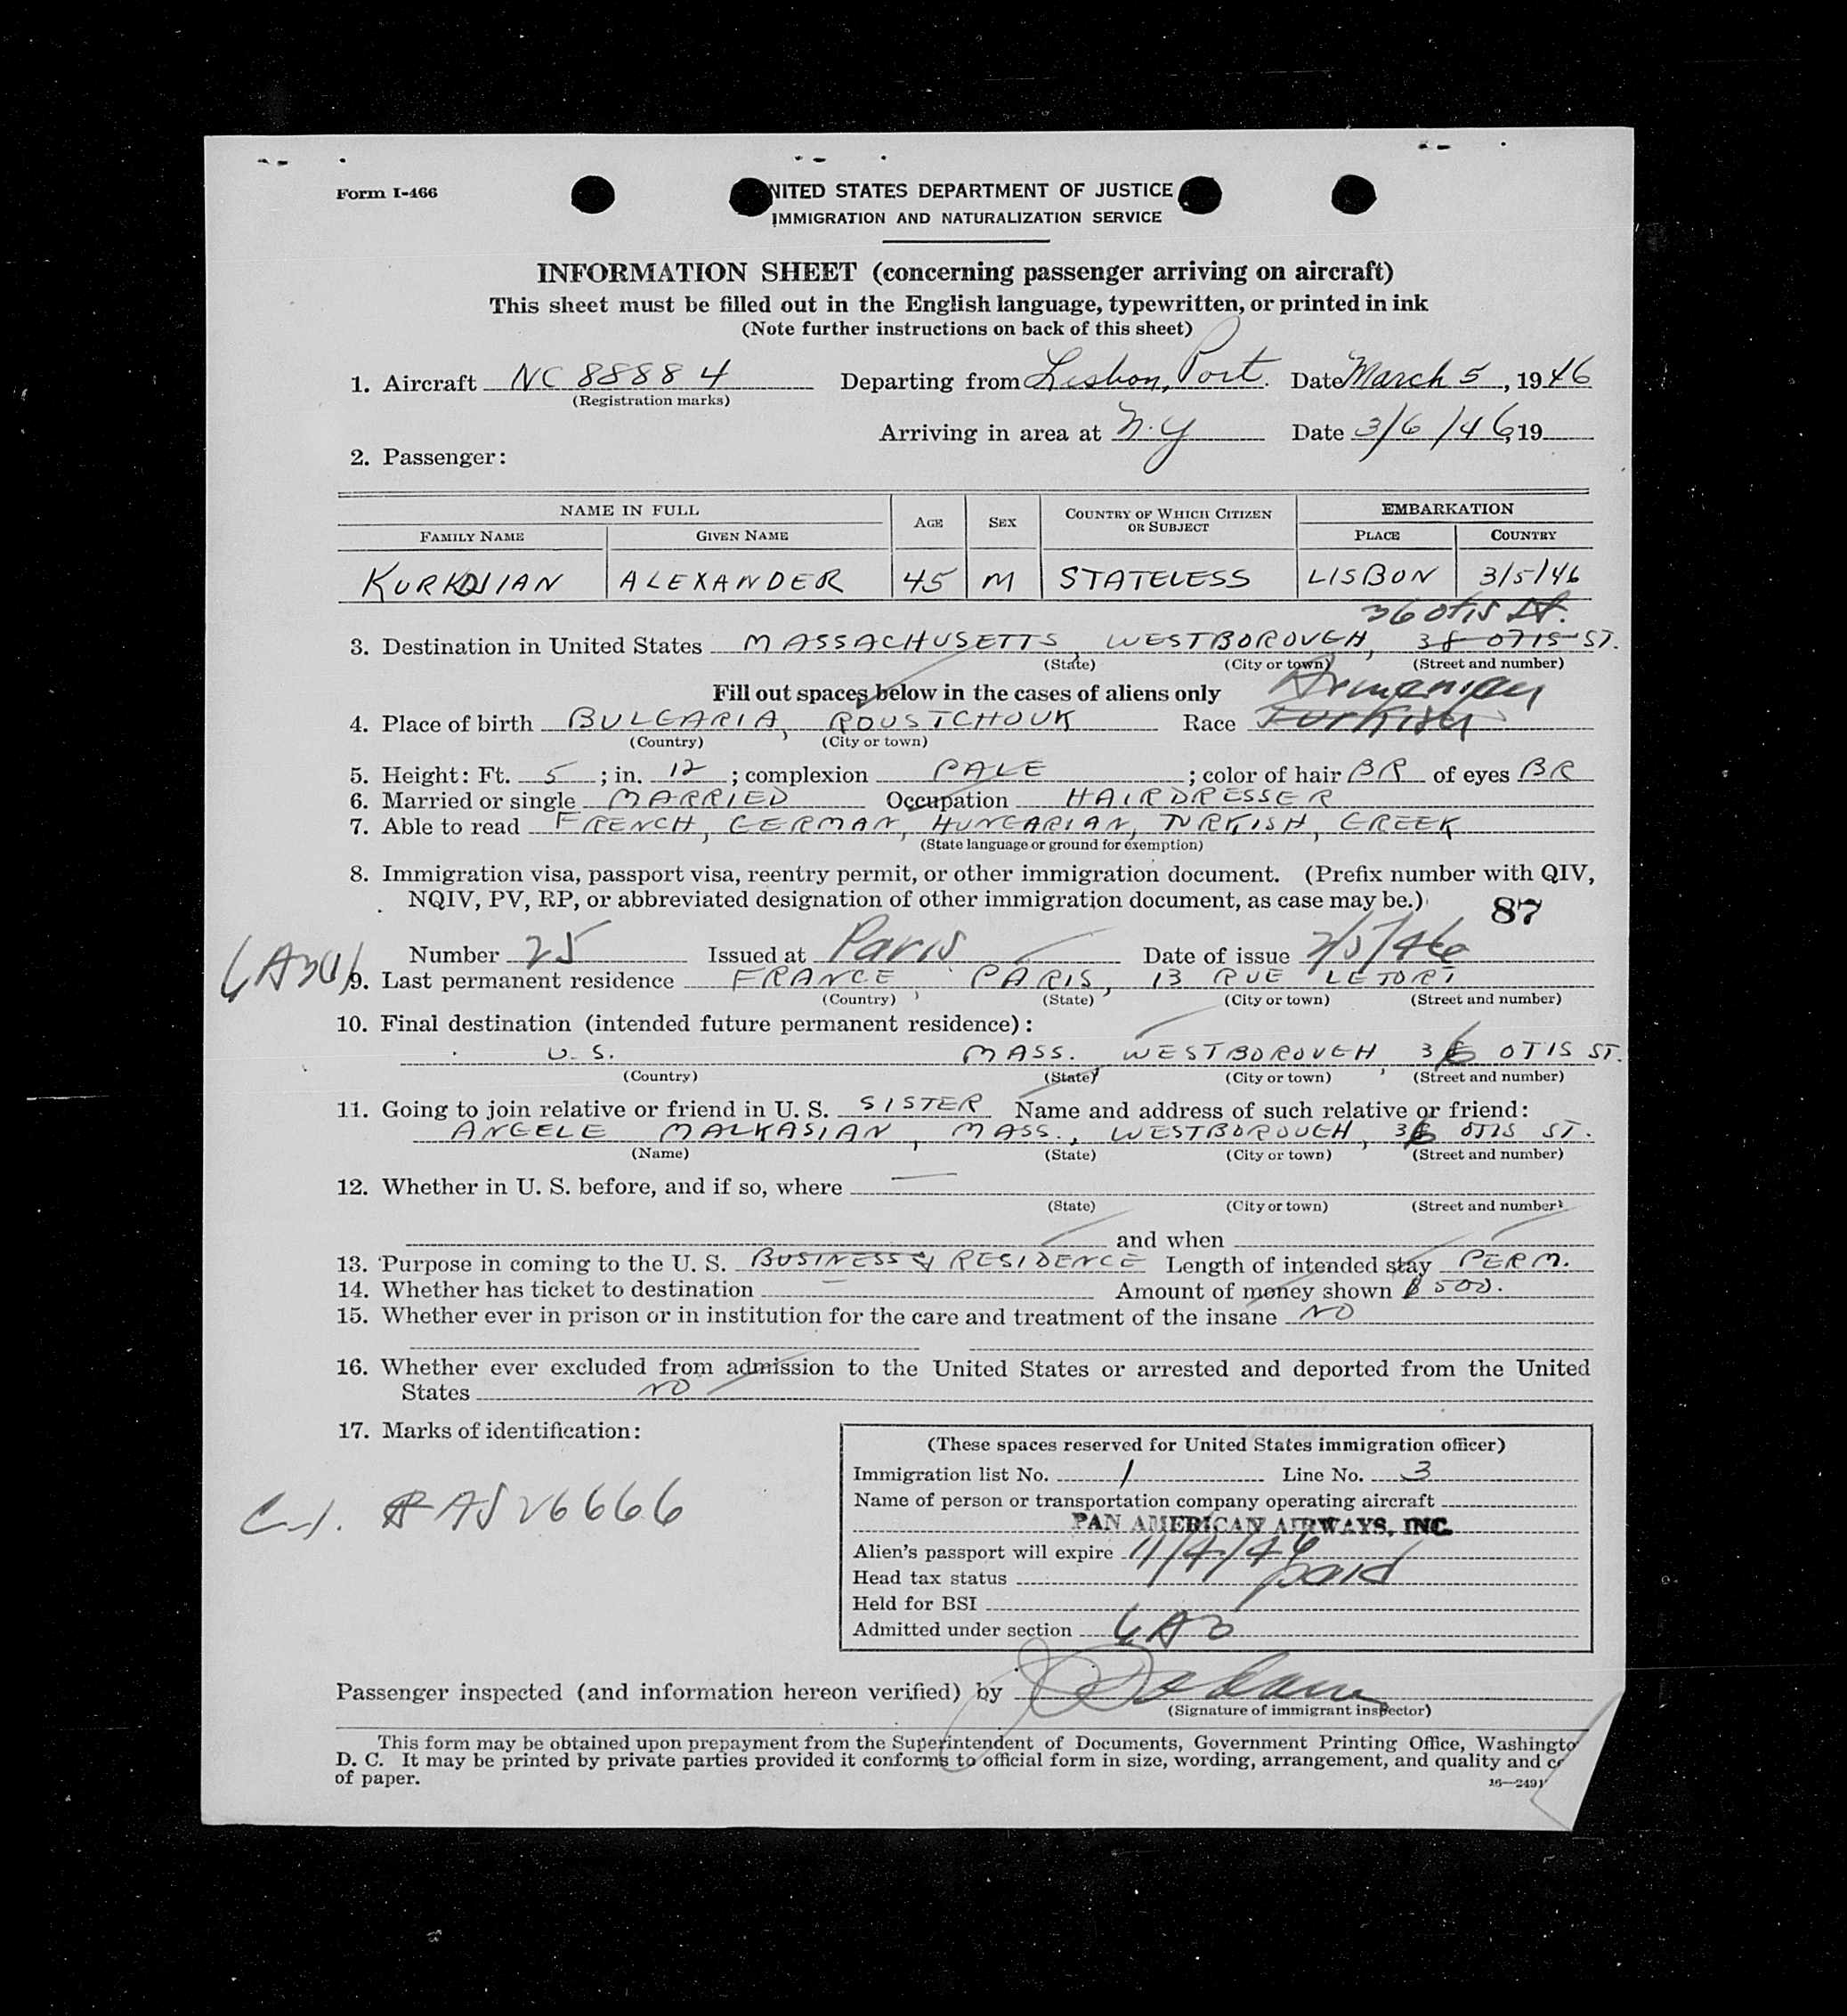 Form I-466
NITED STATES DEPARTMENT OF JUSTICE
IMMIGRATION AND NATURALIZATION SERVICE
INFORMATION SHEET (concerning passenger arriving on aircraft)
This sheet must be filled out in the English language, typewritten, or printed in ink
(Note further instructions on back of this sheet)
1. Aircraft NC 88884 Departing from Lisbon, Port. Date March 5, 1946
(Registration marks)
Arriving in area at N.Y Date 3/6/46, 19
2. Passenger:
NAME IN FULL AGE SEX COUNTRY OF WHICH CITIZEN OR SUBJECT EMBARKATION
FAMILY NAME GIVEN NAME PLACE COUNTRY
ALEXANDER 45 M STATELESS LISBON 3/5/46
36 Otis St.
3. Destination in United States MASSACHUSETTS, WESTBOROUGH, 38 OTIS ST.
(State) (City or town) (Street and number)
Fill out spaces below in the cases of aliens only Armenian
4. Place of birth BULGARIA, ROUSTCHOUK Race Turkish
(Country) (City or town)
5. Height: Ft. 5; in. 12; complexion PALE; color of hair BR of eyes BR
6. Married or single MARRIED Occupation HAIRDRESSER
7. Able to read FRENCH, GERMAN, HUNGARIAN, TURKISH, GREEK
(State language or ground for exemption)
8. Immigration visa, passport visa, reentry permit, or other immigration document. (Prefix number with QIV,
NQIV, PV, RP, or abbreviated designation of other immigration document, as case may be.)
87
Number 25 Issued at Paris Date of issue
9. Last permanent residence FRANCE, PARIS, 13 RUE LETORT
(Country) (State) (City or town) (Street and number)
10. Final destination (intended future permanent residence):
U.S. MASS. WESTBOROUGH, 36 OTIS ST.
(Country) (State) (City or town) (Street and number)
11. Going to join relative or friend in U. S. SISTER Name and address of such relative or friend:
ANGELE MALKASIAN, MASS., WESTBOROUGH, 36 OTIS ST.
(Name) (State) (City or town) (Street and number)
12. Whether in U. S. before, and if so, where —
(State) (City or town) (Street and number)
and when
13. Purpose in coming to the U. S. BUSINESS & RESIDENCE Length of intended stay PERM.
14. Whether has ticket to destination — Amount of money shown $ 500.
15. Whether ever in prison or in institution for the care and treatment of the insane NO
16. Whether ever excluded from admission to the United States or arrested and deported from the United
States NO
17. Marks of identification:
(These spaces reserved for United States immigration officer)
Immigration list No. 1 Line No. 3
Name of person or transportation company operating aircraft
PAN AMERICAN AIRWAYS, INC.
Alien's passport will expire 11/4/46
Head tax status paid
Held for BSI
Admitted under section 4A3
Passenger inspected (and information hereon verified) by
(Signature of immigrant inspector)
This form may be obtained upon prepayment from the Superintendent of Documents, Government Printing Office, Washingto
D. C. It may be printed by private parties provided it conforms to official form in size, wording, arrangement, and quality and
of paper.